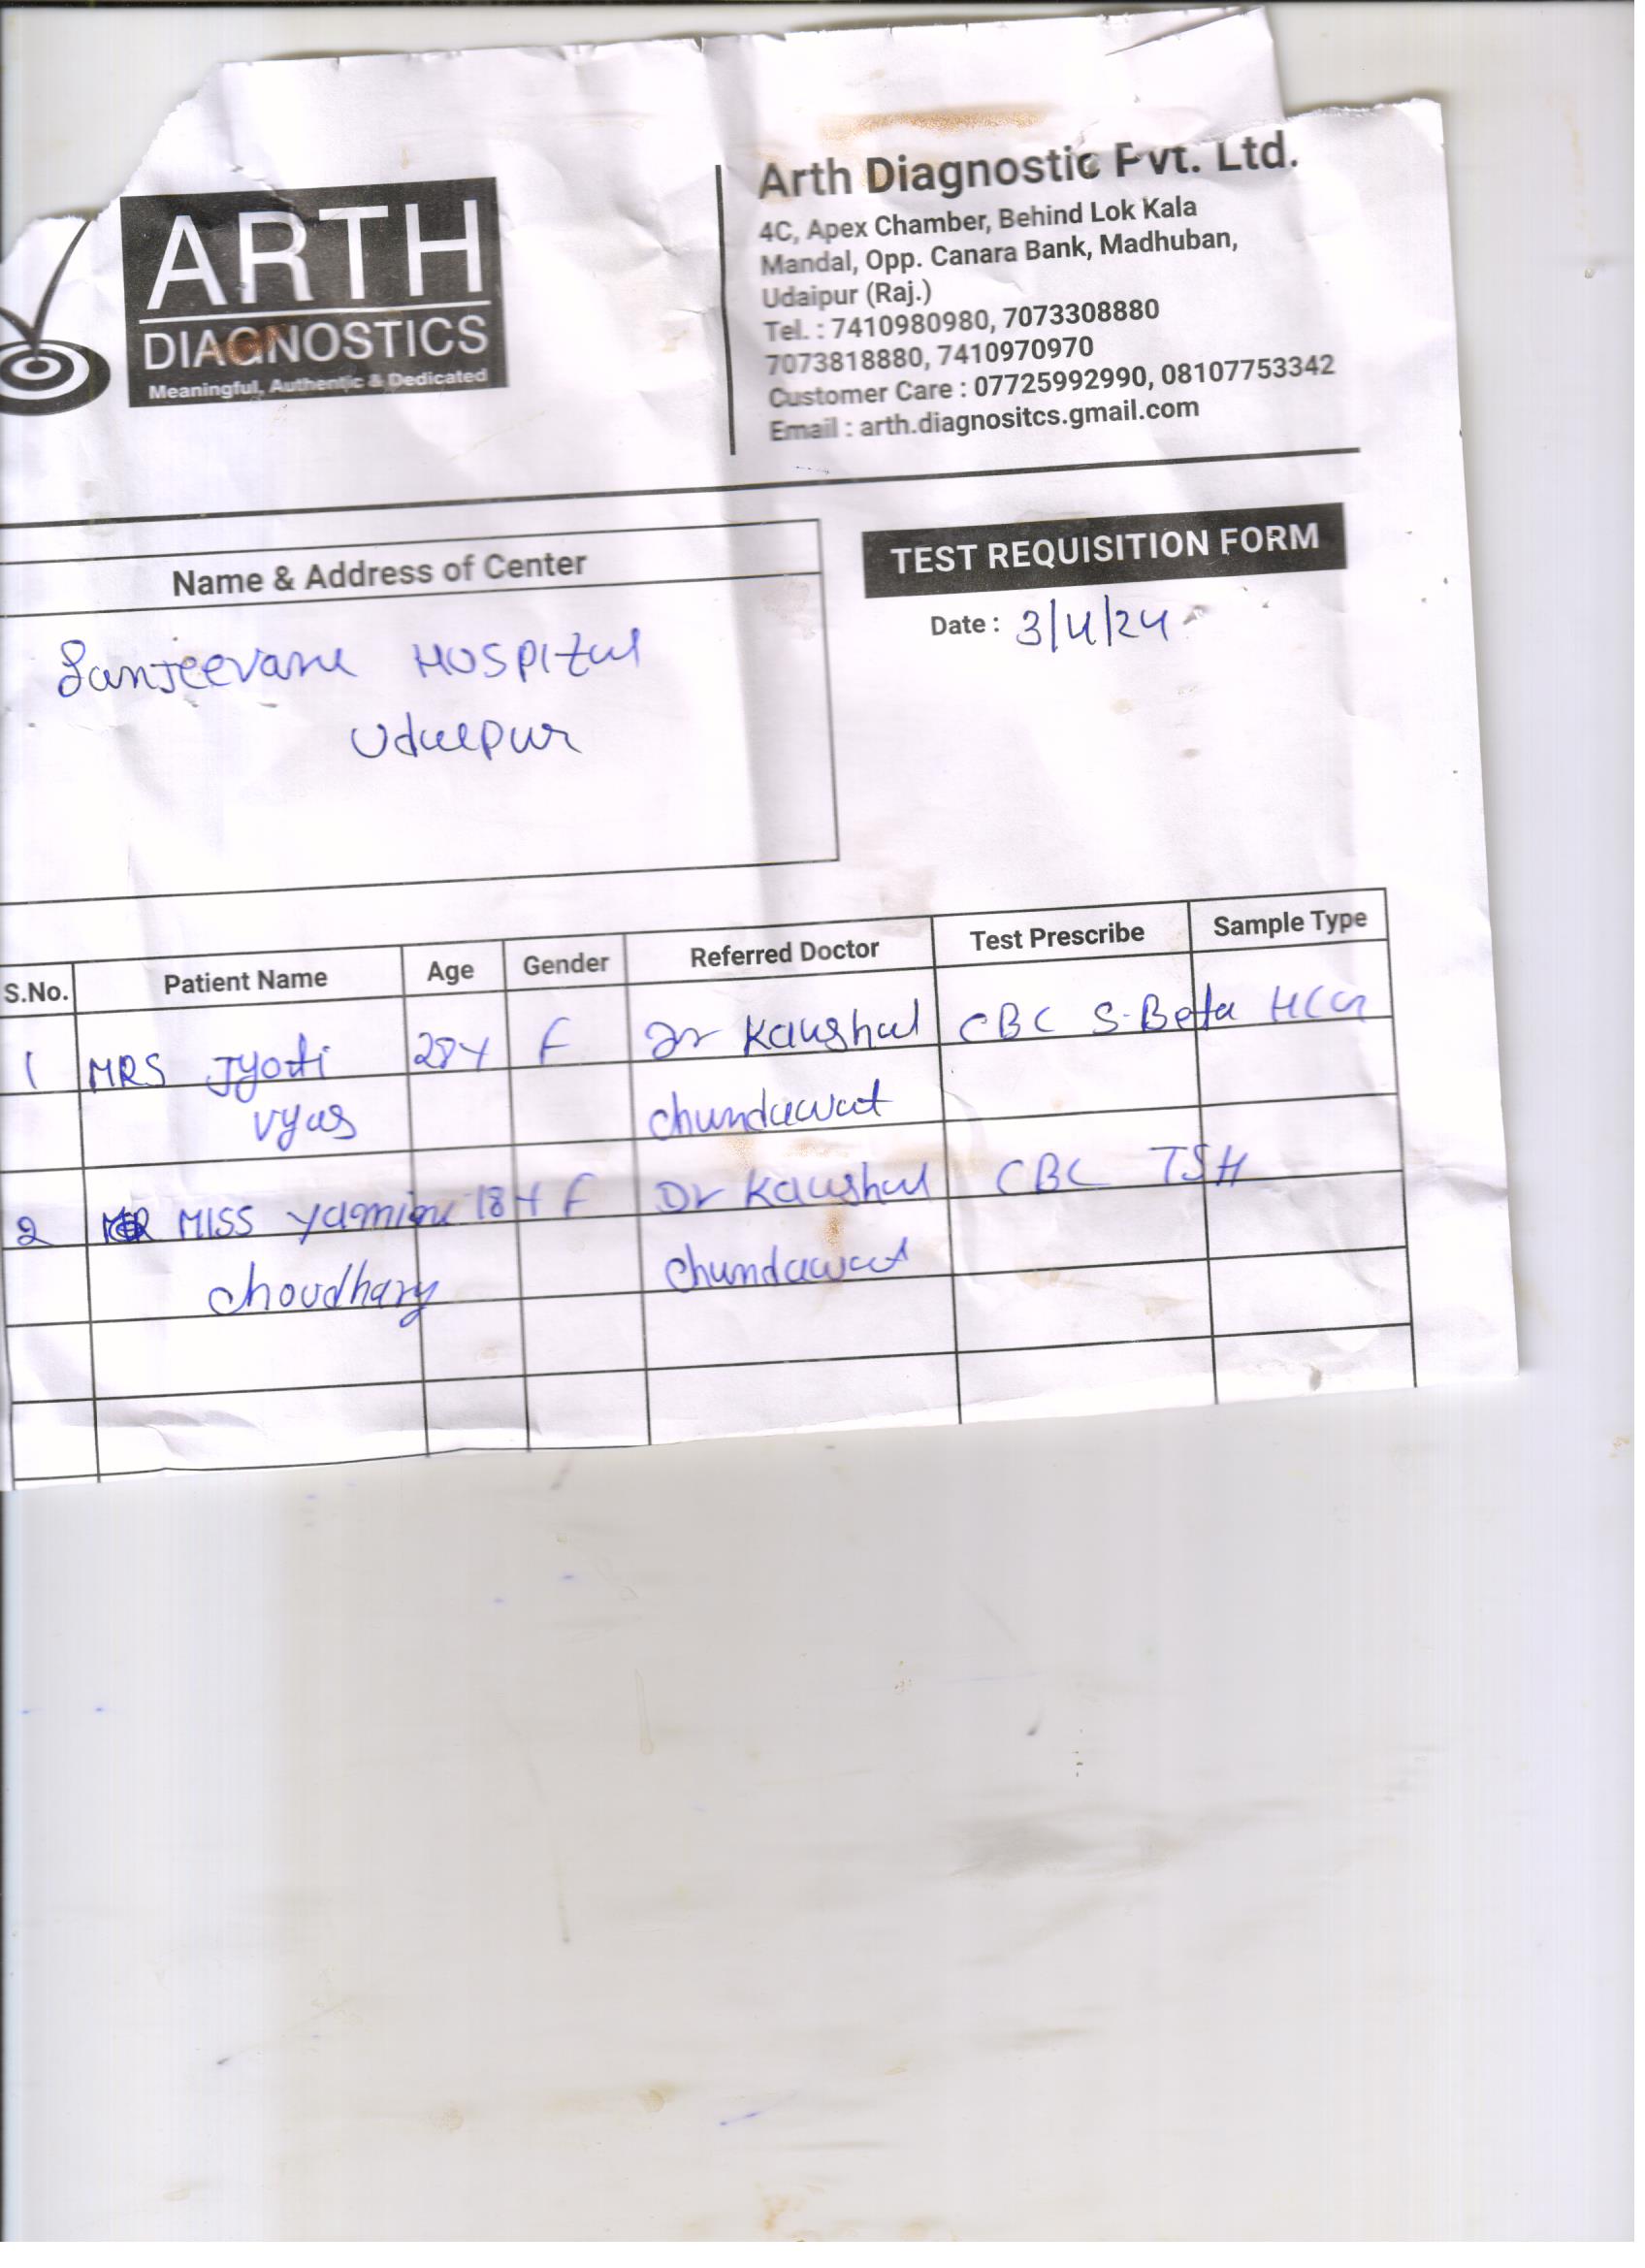 ARTH
DIAGNOSTICS
Meaningful, Authentic & Dedicated
Arth Diagnostic Pvt. Ltd.
4C, Apex Chamber, Behind Lok Kala
Mandal, Opp. Canara Bank, Madhuban,
Udaipur (Raj.)
Tel. : 7410980980, 7073308880
7073818880, 7410970970
Customer Care : 07725992990, 08107753342
Email : arth.diagnositcs.gmail.com
Name & Address of Center
Sanjeevani HOSPITal
Udaipur
TEST REQUISITION FORM
Date : 3/4/24
S.No. Patient Name Age Gender Referred Doctor Test Prescribe Sample Type
1 MRS Jyoti 28Y F Dr Kaushal CBC S-Beta HCG
Vyas chundawat
2 MISS Yamini 18Y F Dr Kaushal CBC TSH
Choudhary Chundawat